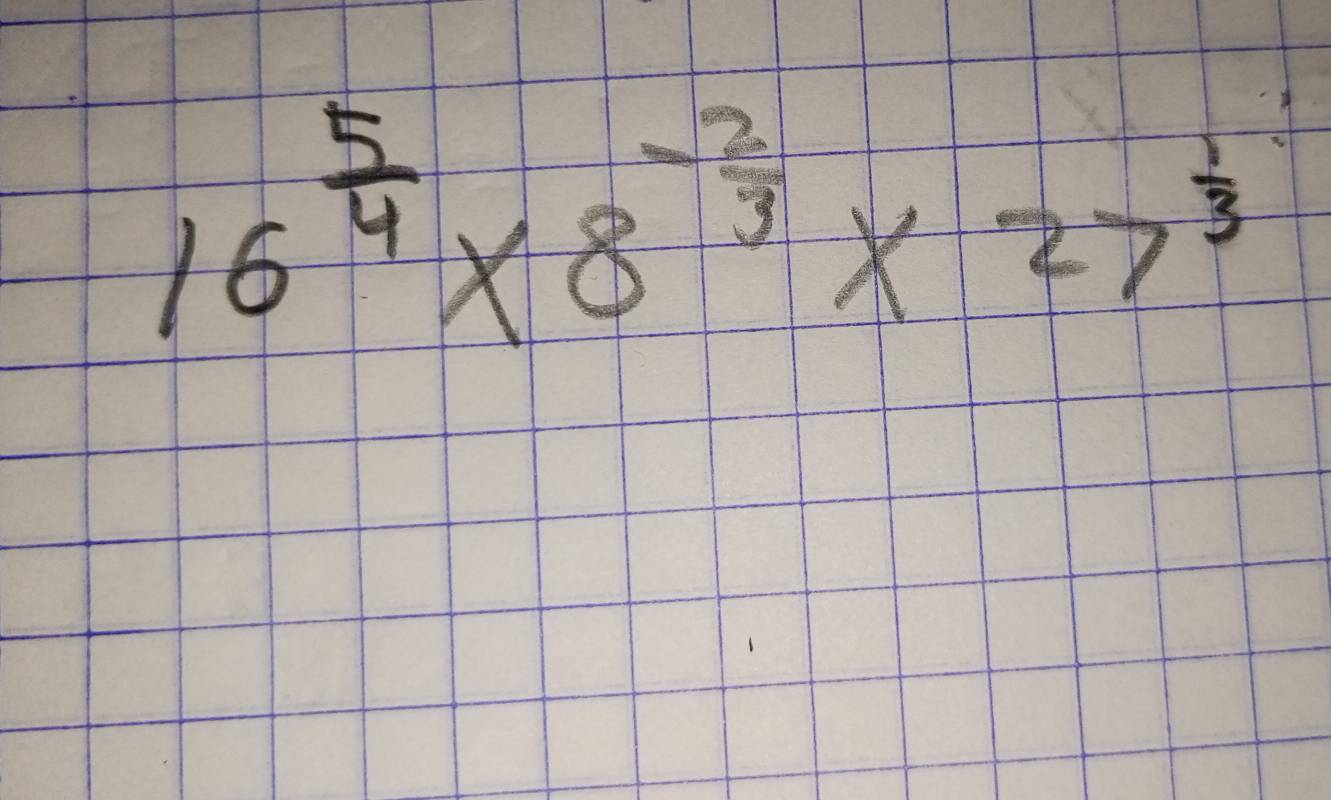 16^{\frac{5}{4}} × 8^{-\frac{2}{3}} × 27^{\frac{1}{3}}